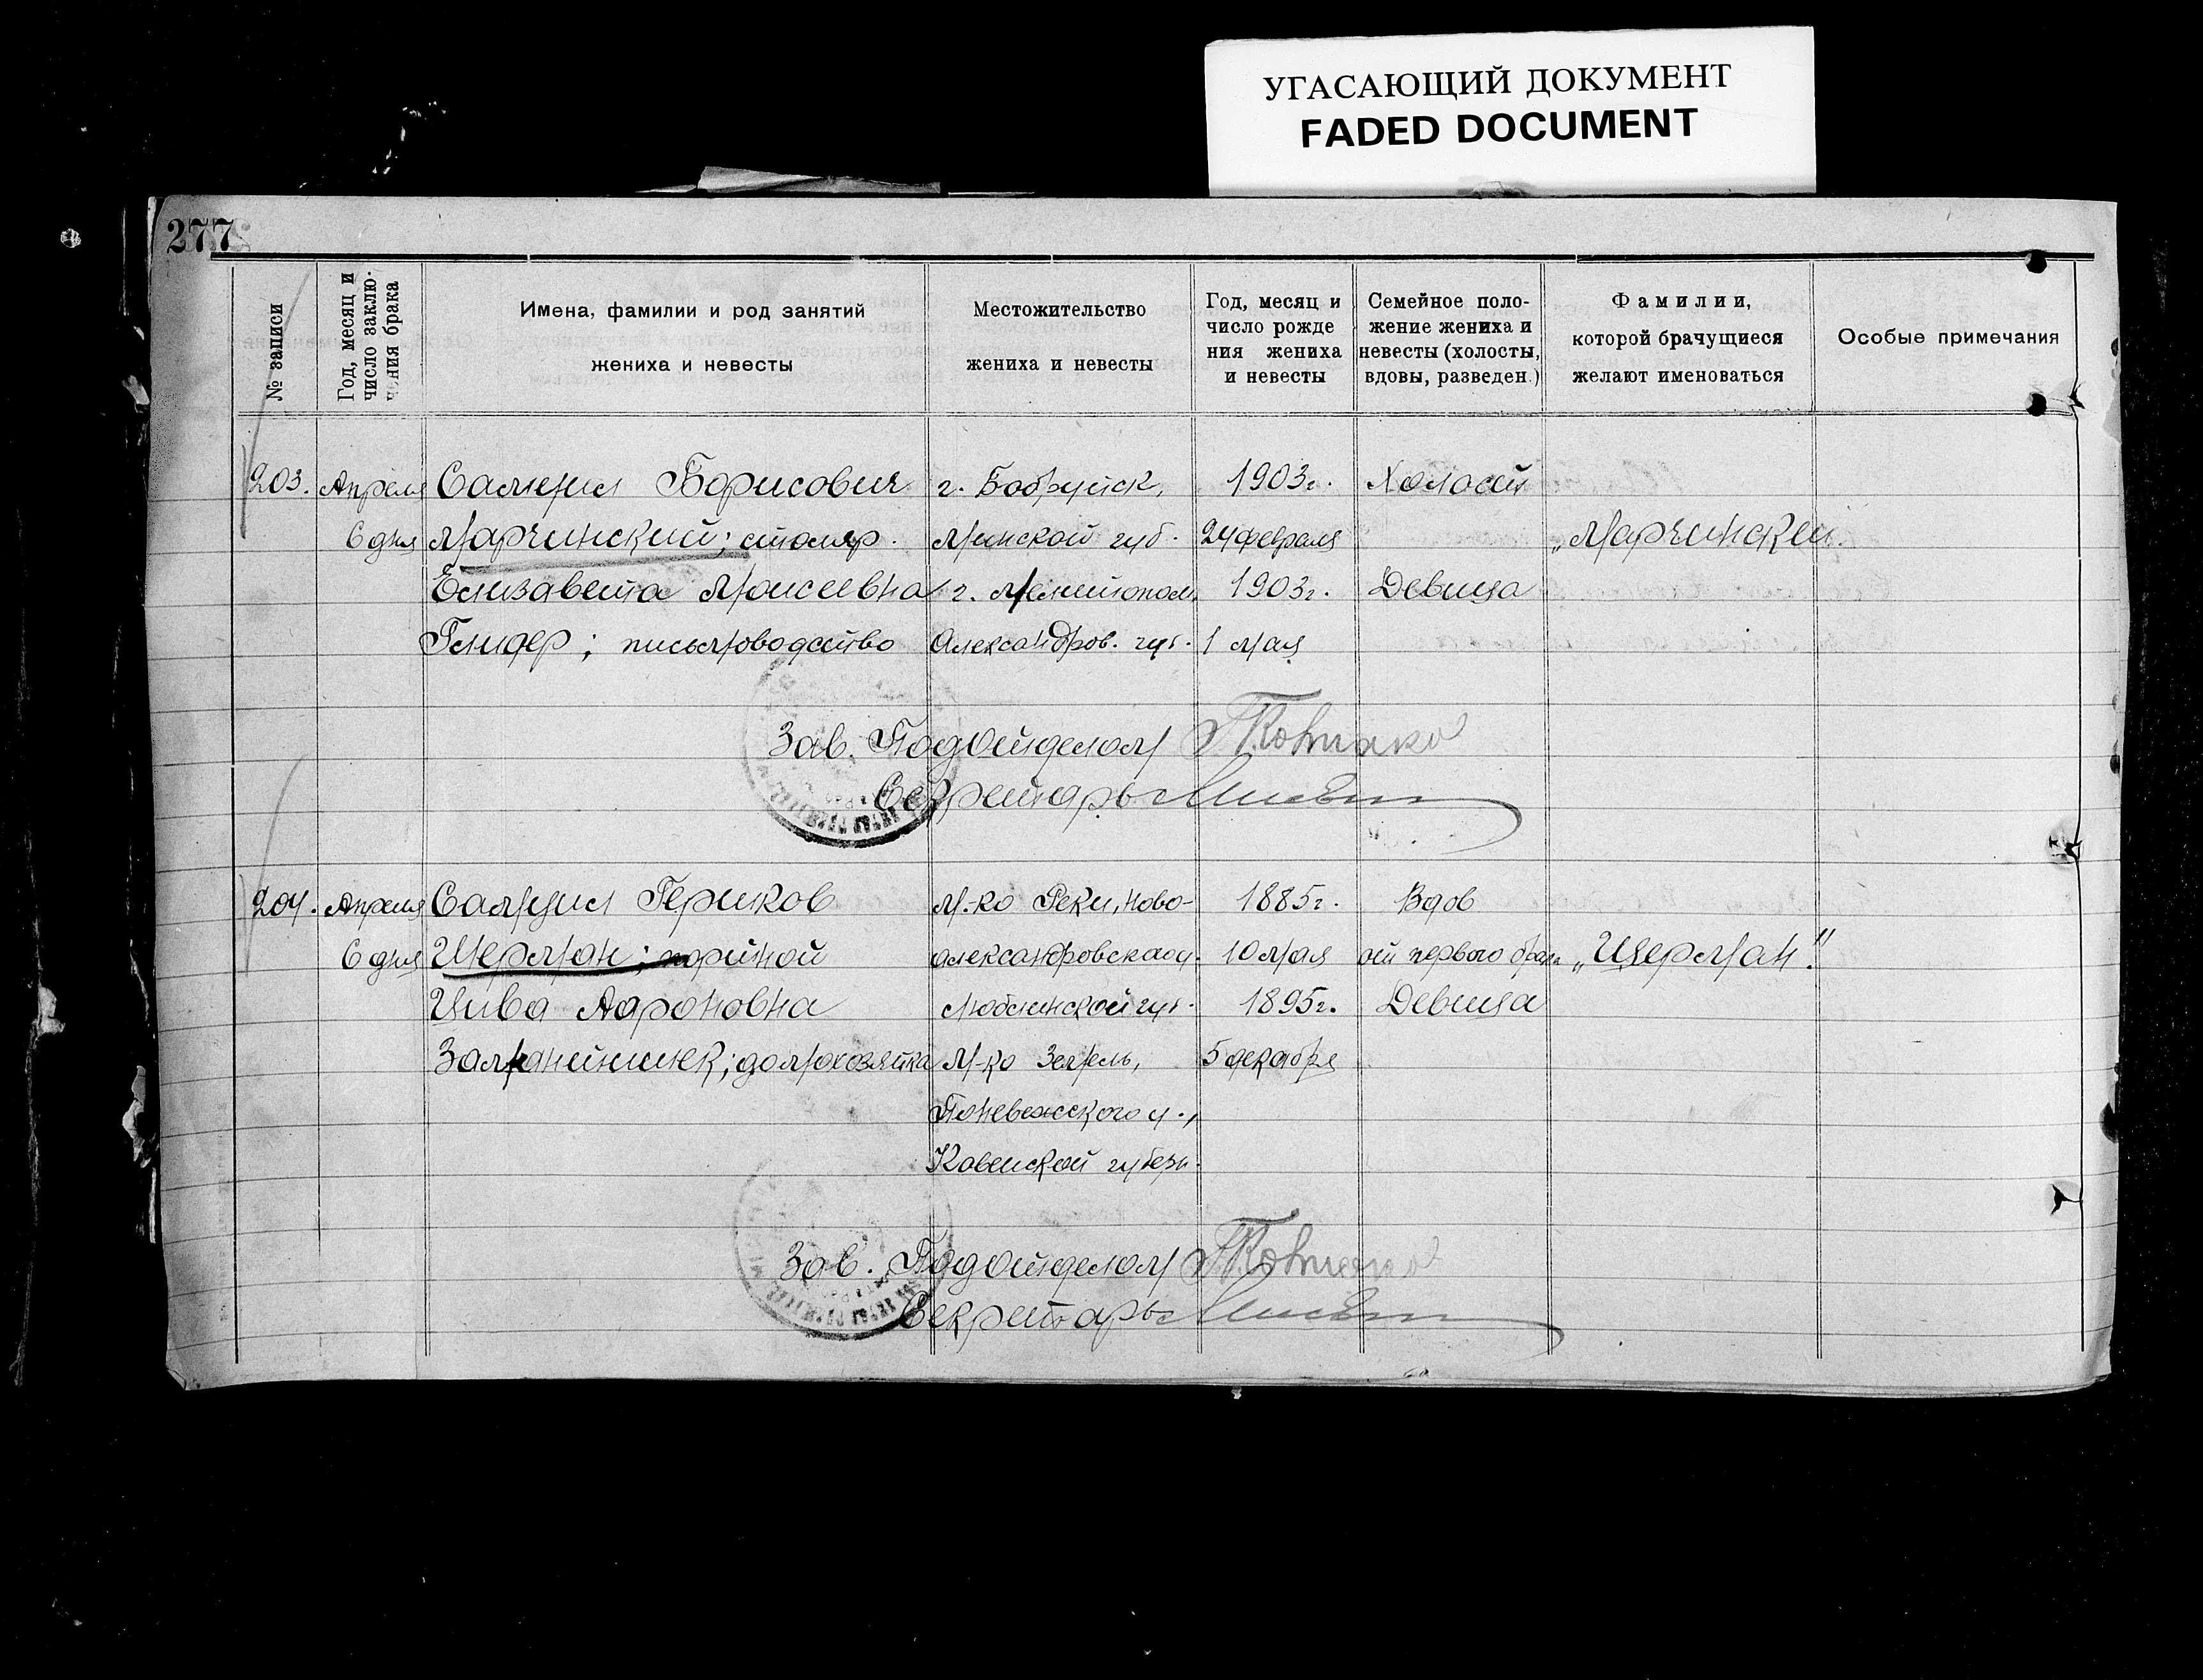 УГАСАЮЩИЙ ДОКУМЕНТ
FADED DOCUMENT
277
№ записи
Год, месяц и
число заклю-
чения брака
Имена, фамилии и род занятий
жениха и невесты
Местожительство
жениха и невесты
Год, месяц и
число рожде
ния жениха
и невесты
Семейное поло-
жение жениха и
невесты (холосты,
вдовы, разведен.)
Фамилии,
которой брачущиеся
желают именоваться
Особые примечания
203. Апреля Самуил Борисович г. Бобруйск, 1903г. Холост
6 дня Марчинский; столяр. Минской губ. 24 февраля „Марчинский.
Елизавета Моисеевна г. Мелитополь 1903г. Девица
Глидер; письмоводство Александров. губ. 1 мая
Зав. Подотделом
Секретарь
204. Апреля Самуил Гериков м-ко Реки, Ново- 1885г. Вдов
6 дня Шерман; портной александровская у. 10 мая от первого брака „Шерман".
Цива Ароновна Люблинской губ. 1895г. Девица
домохозяйка М-ко 5 декабря
Поневежского у.,
Ковенской губерн.
Зав. Подотделом
Секретарь